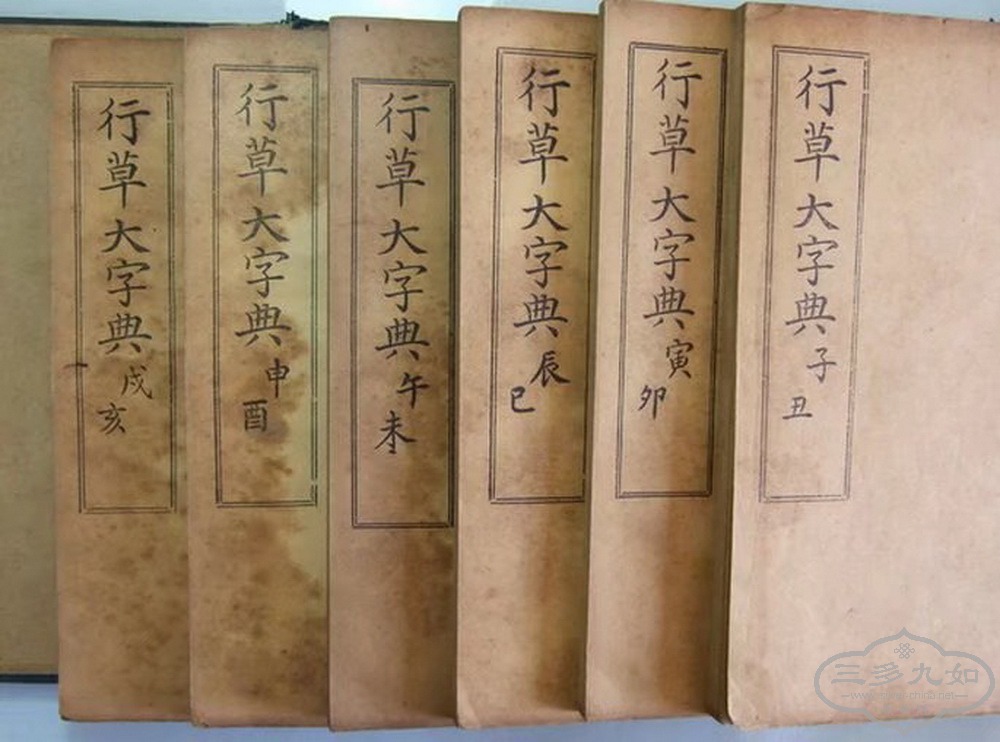 行草大字典 子丑
行草大字典 寅卯
行草大字典 辰巳
行草大字典 午未
行草大字典 申酉
行草大字典 戌亥
三多九如